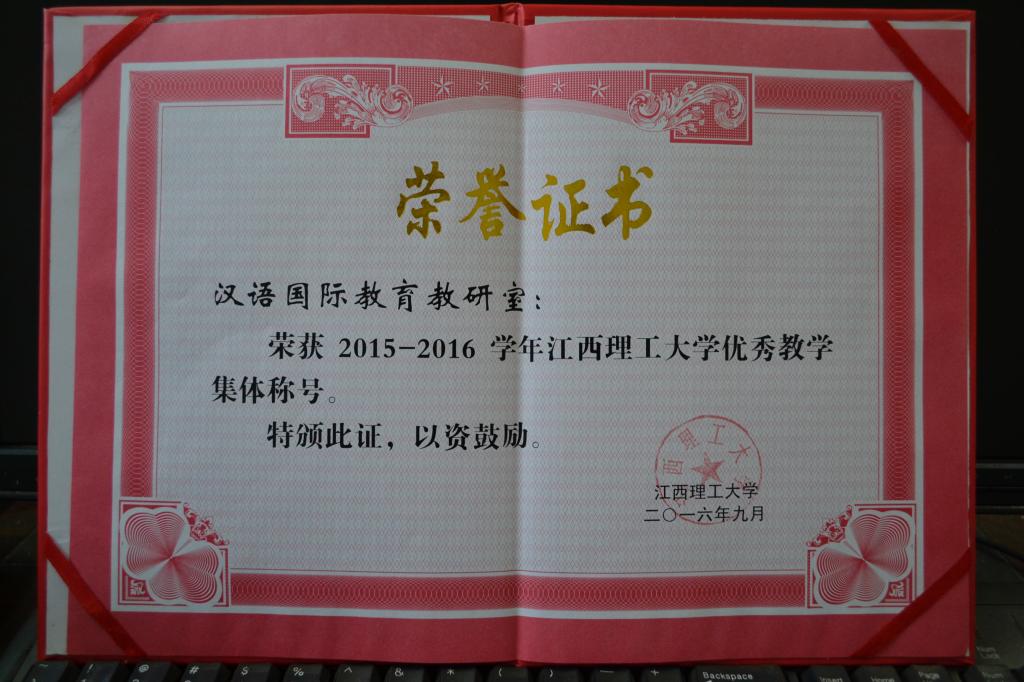 荣誉证书
汉语国际教育教研室：
荣获 2015-2016 学年江西理工大学优秀教学
集体称号。
特颁此证，以资鼓励。
江西理工大学
江西理工大学
二〇一六年九月
! @ # $ % ^ & * ( Backspace Insert Home Page Num
Lock